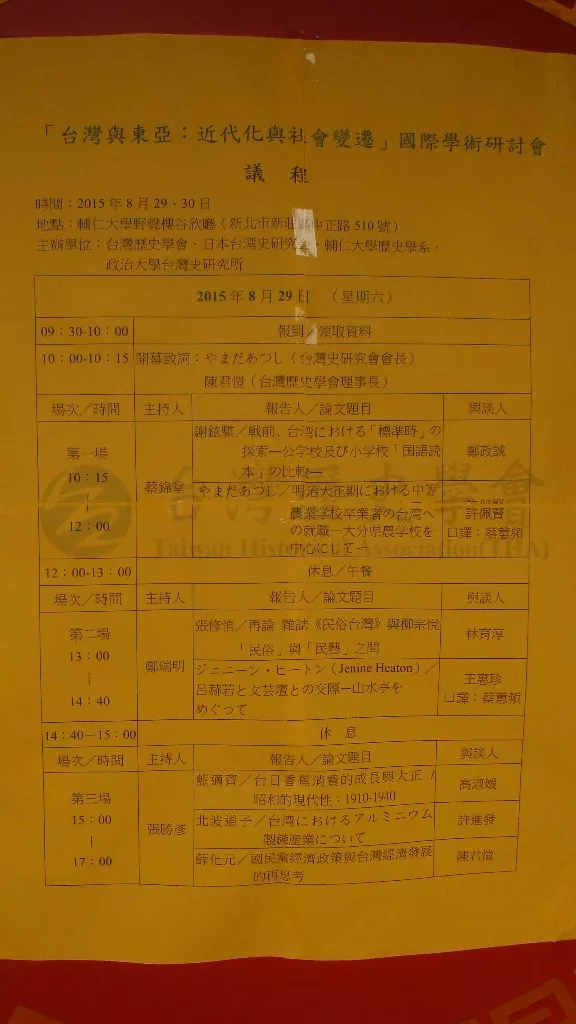 「台灣與東亞：近代化與社會變遷」國際學術研討會
議 程
時間：2015 年 8 月 29、30 日
地點：輔仁大學野聲樓谷欣廳（新北市新莊區中正路 510 號）
主辦單位：台灣歷史學會、日本台灣史研究會、輔仁大學歷史學系、
政治大學台灣史研究所
2015 年 8 月 29 日 （星期六）
09：30-10：00 報到／領取資料
10：00-10：15 開幕致詞：やまだあつし（台灣史研究會會長）
陳君愷（台灣歷史學會理事長）
場次／時間 主持人 報告人／論文題目 與談人
第一場
10：15
|
12：00
蔡錦堂
謝鎧騏／戦前、台湾における「標準時」の
探索—公学校及び小学校「国語読
本」の比較—
鄭政誠
やまだあつし／明治大正期における中等
農業学校卒業者の台湾へ
の就職—大分県農学校を
中心にして—
許佩賢
口譯：蔡蕙頻
台灣歷史學會
Taiwan Historical Association(THA)
12：00-13：00 休息／午餐
場次／時間 主持人 報告人／論文題目 與談人
第二場
13：00
|
14：40
鄭瑞明
張修慎／再論 雜誌《民俗台灣》與柳宗悅
「民俗」與「民藝」之間
林育淳
ジェニーン・ヒートン（Jenine Heaton）／
呂赫若と文芸壇との交際—山水亭を
めぐって
王惠珍
口譯：蔡蕙頻
14：40—15：00 休 息
場次／時間 主持人 報告人／論文題目 與談人
第三場
15：00
|
17：00
張勝彥
藍適齊／台日香蕉消費的成長與大正／
昭和的現代性：1910-1940
高淑媛
北波道子／台湾におけるアルミニウム
製錬産業について
許進發
薛化元／國民黨經濟政策與台灣經濟發展
的再思考
陳君愷